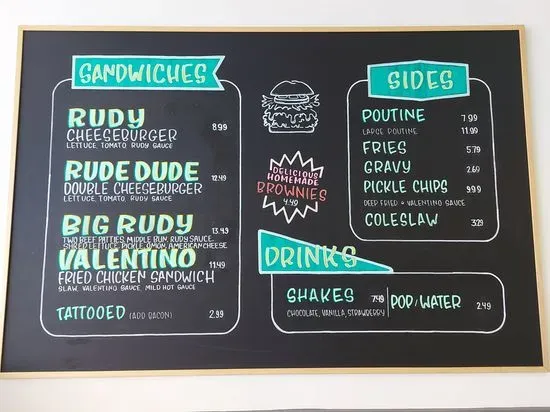 SANDWICHES
RUDY
CHEESEBURGER 8.99
LETTUCE, TOMATO, RUDY SAUCE
RUDE DUDE
DOUBLE CHEESEBURGER 12.49
LETTUCE, TOMATO, RUDY SAUCE
BIG RUDY 13.49
TWO BEEF PATTIES, MIDDLE BUN, RUDY SAUCE,
SHRED LETTUCE, PICKLE, ONION, AMERICAN CHEESE
VALENTINO 11.49
FRIED CHICKEN SANDWICH
SLAW, VALENTINO SAUCE, MILD HOT SAUCE
TATTOOED (ADD BACON) 2.99
DELICIOUS
HOMEMADE
BROWNIES
4.49
SIDES
POUTINE 7.99
LARGE POUTINE 11.99
FRIES 5.79
GRAVY 2.69
PICKLE CHIPS 9.99
DEEP FRIED + VALENTINO SAUCE
COLESLAW 3.29
DRINKS
SHAKES 7.49
CHOCOLATE, VANILLA, STRAWBERRY
POP / WATER 2.49